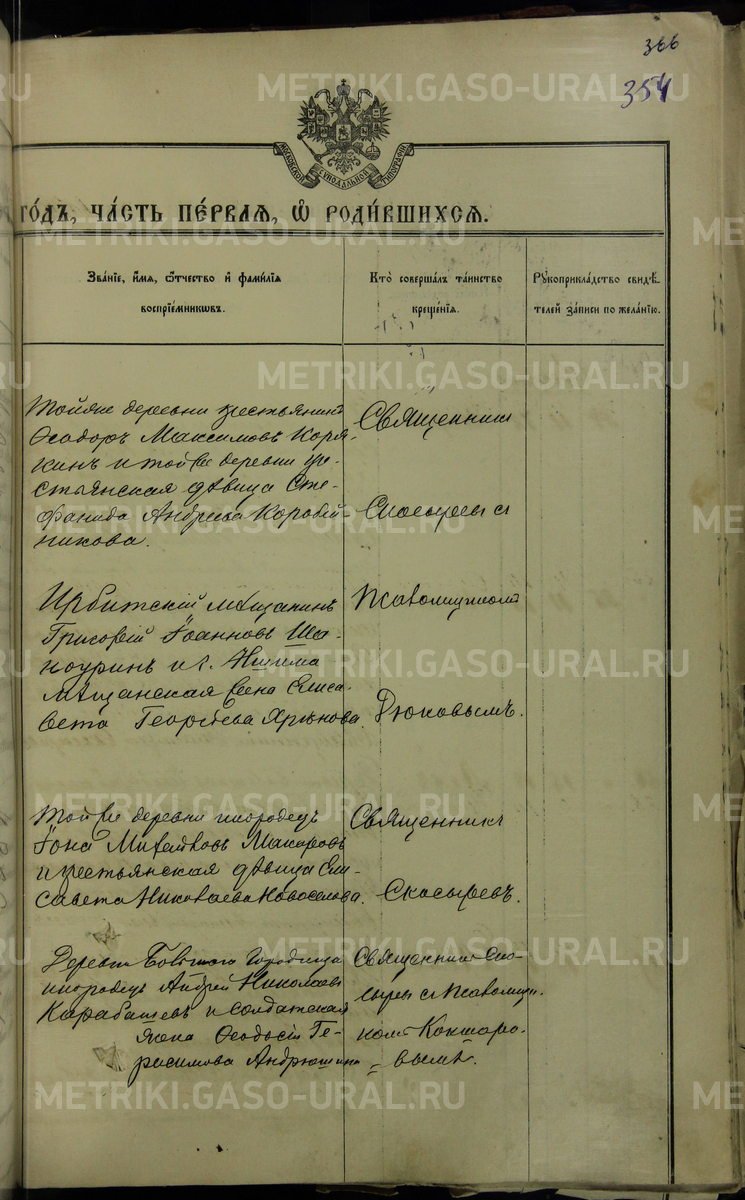 366
354
МОСКОВСКОЙ СѴНОДАЛЬНОЙ ТИПОГРАФІИ
ГОДЪ, ЧАСТЬ ПЕРВАЯ, Ѡ РОДИВШИХСЯ.
Званіе, имя, ѿчество и фамилія
воспріемникѡвъ.
Кто совершалъ таинство
крещенія.
Рꙋкоприкладство свидѣ-
телей записи по желанію.
Тойже деревни крестьянинъ
Ѳеодоръ Максимовъ Коря-
кинъ и той же деревни кре-
стьянская дѣвица Сте-
фанида Андреева Коровей-
никова.
Священник
Скосырев с
Ирбитскій мѣщанинъ
Григорій Іоанновъ Ша-
ноуринъ и г. Ишима
мѣщанская жена Елиса-
вета Георгіева Хрѣнова.
Псаломщиком
Дюковымъ.
Той же деревни инородецъ
Іона Михайловъ Макаровъ
и крестьянская дѣвица Ели-
савета Николаева Новоселова.
Священникъ
Скосыревъ.
Деревни Городища
инородецъ Андрей Николаевъ
Карабашевъ и солдатская
жена Ѳеодосія Ге-
расимова Андрюшина
Священник Ско-
сырев с Псаломщи-
ком Кокшаро-
= вымъ.
METRIKI.GASO-URAL.RU